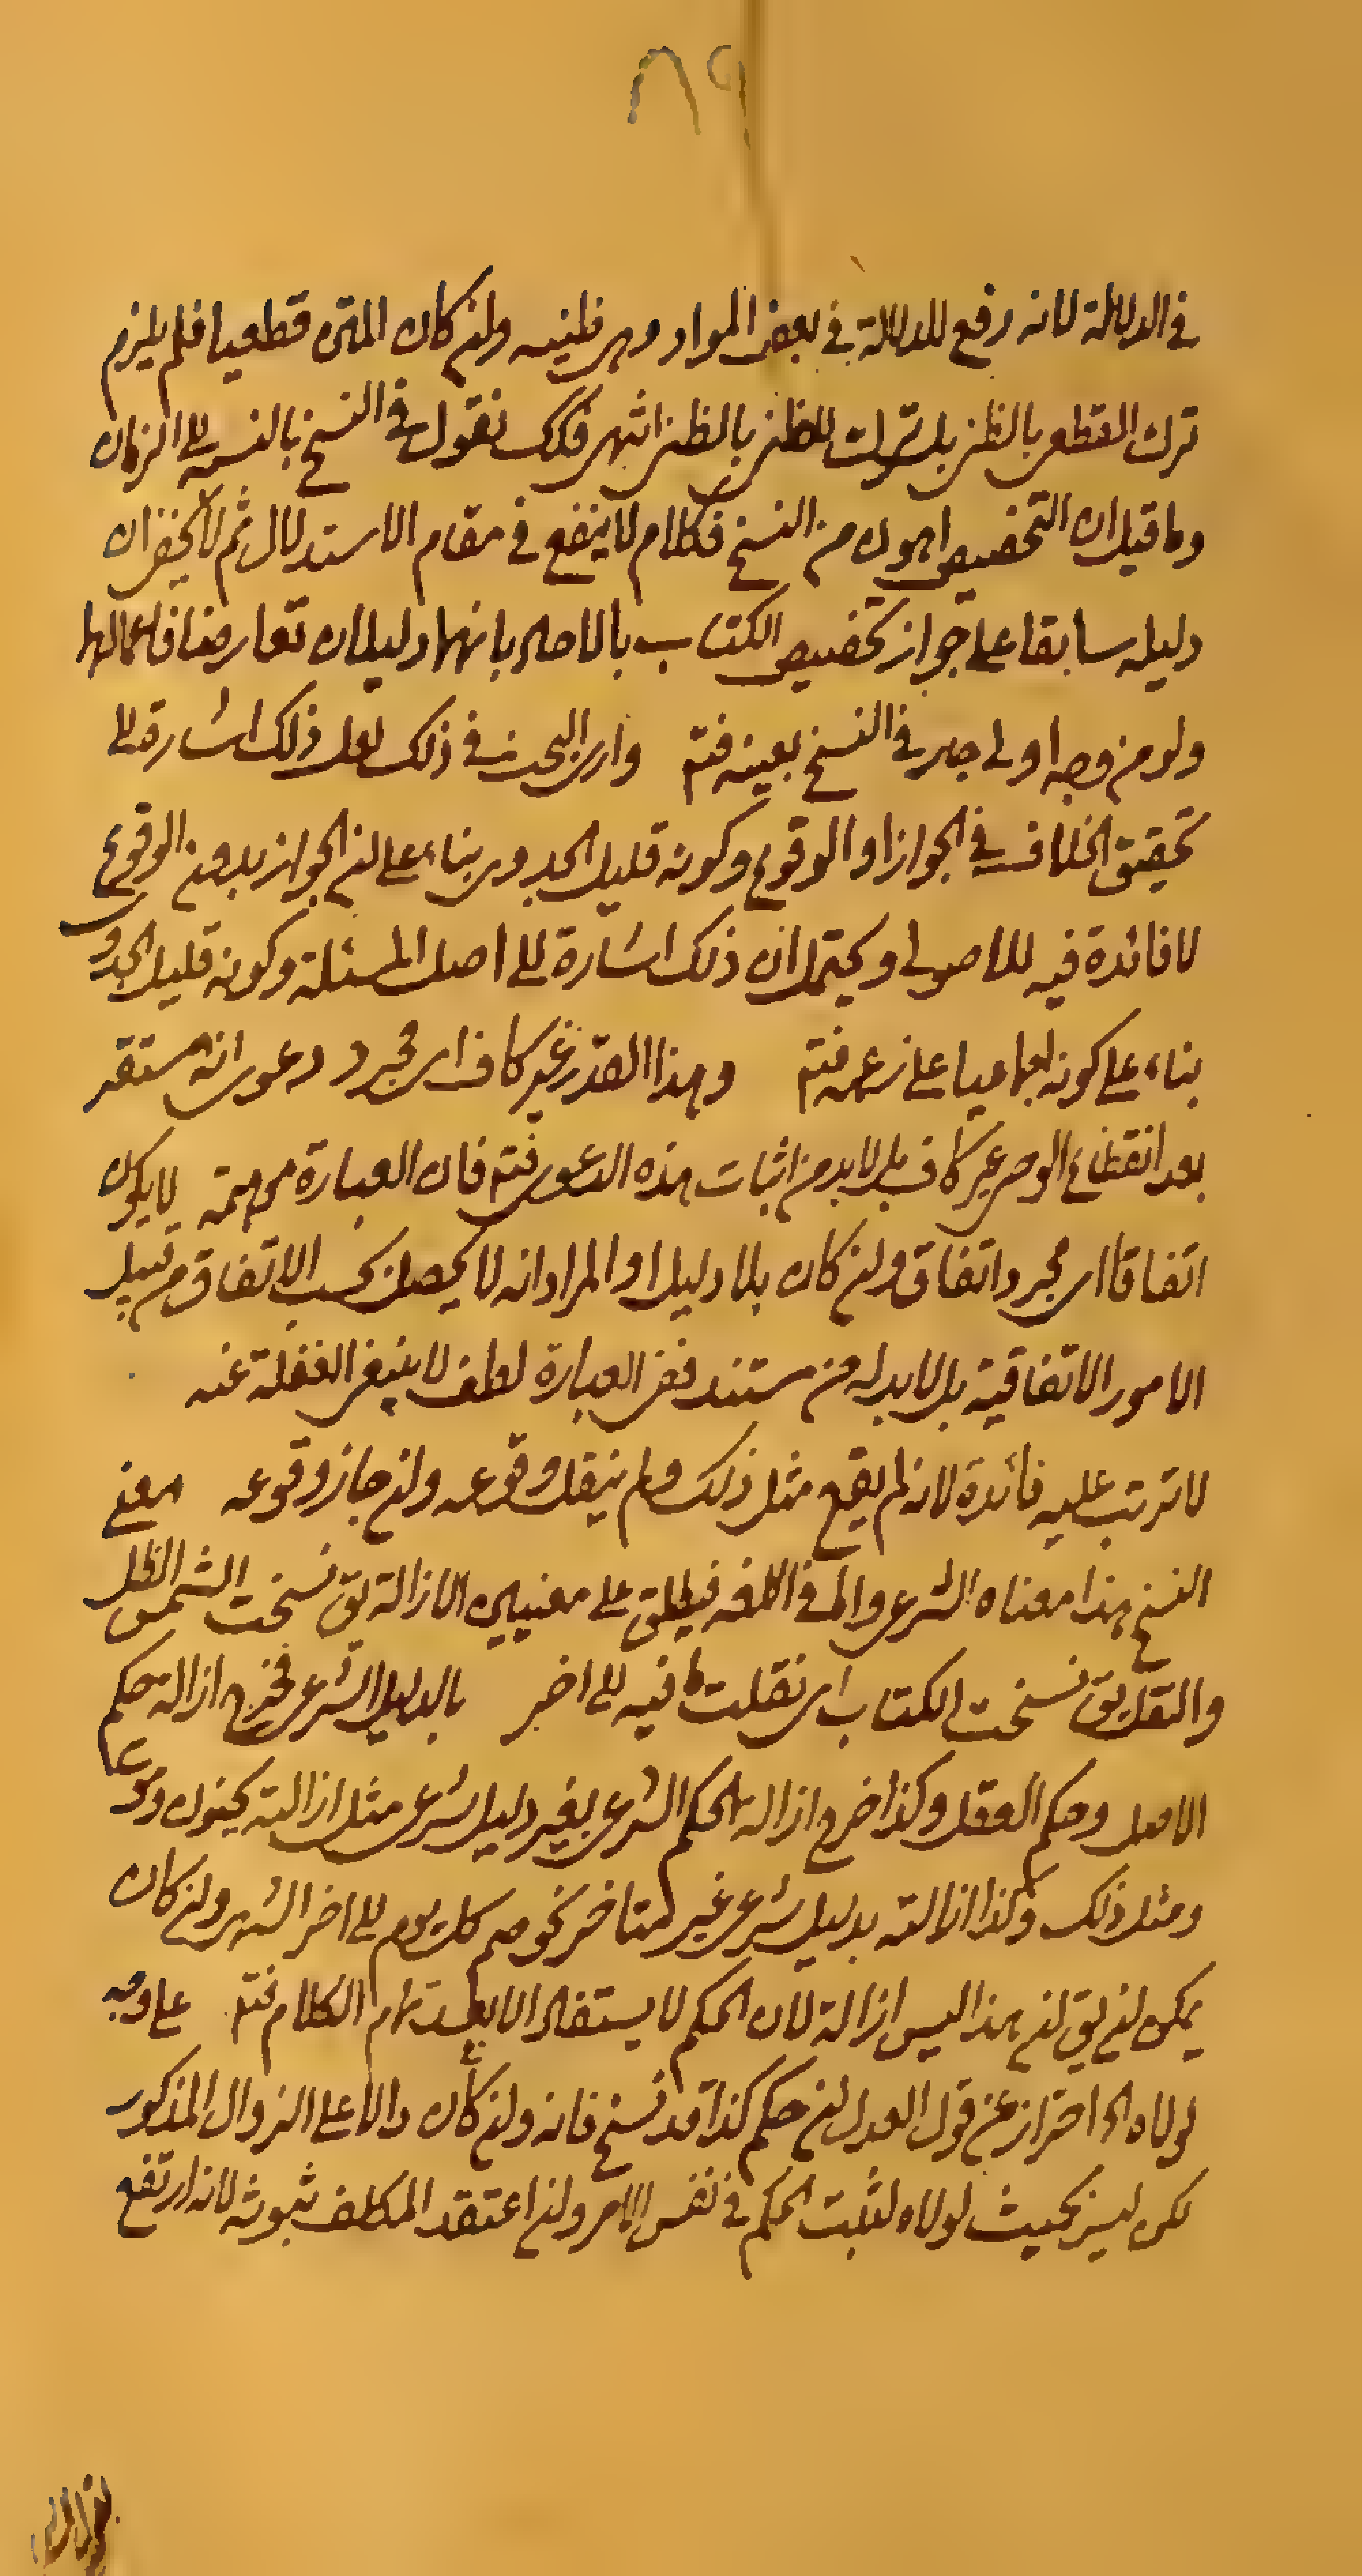 ٨٩
في الدلالة لانه رفع للدلالة في بعض المواد وهي ظنيه وان كان المتن قطعيا فلم يلزم
ترك القطعي بالظني بل ترك الظني بالظني انتهى فكك نقول في النسخ بالنسبه الى الزمان
وما قيل ان التخصيص اهون من النسخ فكلام لا ينفع في مقام الاستدلال ثم لا يخفى ان
دليله سابقا على جواز تخصيص الكتاب بالاحاد بانهما دليلان تعارضا فاعمالهما
ولو من وجه اولى جار في النسخ بعينه فتم وارى البحث في ذلك لعل ذلك اشارة الى
تحقيق الخلاف في الجواز او الوقوع وكونه قليل الجدوى بناء على ان الجواز بدون الوقوع
لا فائدة فيه للاصولي ويحتمل ان ذلك اشارة الى اصل المسئلة وكونه قليل الجدوى
بناء على كونه اجماعيا على زعمه فتم وهذا القدر غير كاف اي مجرد دعوى انه مستقر
بعد انقطاع الوحي غير كاف بل لا بد من اثبات هذه الدعوى فتم فان العبارة مبهمة لا يكون
اتفاقا اي مجرد اتفاق وان كان بلا دليل او المراد انه لا يحصل بحسب الاتفاق من قبيل
الامور الاتفاقية بل لا بد له من مستند ففي العبارة لطف لا ينبغي الغفلة عنه
لا ترتب عليه فائدة لانه لم يقع مثل ذلك ولم ينقل وقوعه وان جاز وقوعه معنى
النسخ هذا معناه الشرعي واما في اللغه فيطلق على معنيين الازالة يق نسخت الشمس الظل
والنقل يق نسخت الكتاب اي نقلت ما فيه الى اخر بالدليل الشرعي فخرج ازالة حكم
الاصل وحكم العقل وكذا خرج ازالة الحكم الشرعي بغير دليل شرعي مثل ازالته بجنون وموت
ومثل ذلك وكذا ازالته بدليل شرعي غير متاخر نحو صم كل يوم الى اخر الشهر وان كان
يمكن ان يق ان هذا ليس ازالة لان الحكم لا يستفاد الا بعد تمام الكلام فتم على وجه
لولاه اه احتراز عن قول العدل ان حكم كذا قد نسخ فانه وان كان دالا على الزوال المذكور
لكن ليس بحيث لولاه لثبت الحكم في نفس الامر وان اعتقد المكلف ثبوته لانه ارتفع